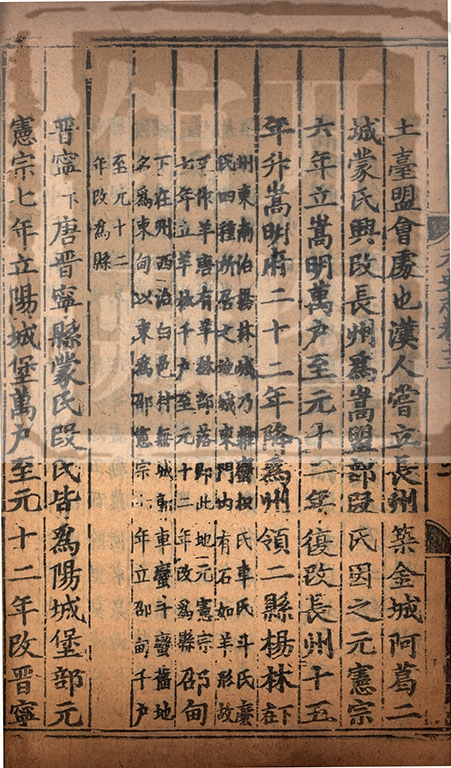 土臺盟會處也漢人嘗立長州築金城阿葛二
城蒙氏興改長州爲嵩盟部段氏因之元憲宗
六年立嵩明萬戶至元十二年復改長州十五
年升嵩明府二十二年降爲州領二縣楊林下在
州東南治楊林城乃雜蠻枳氏車氏斗氏麽
氏四種所居之地城東門內有石如羊形故
又作羊唐有羊林部落即此地元憲宗
七年立羊林千戶至元十二年改爲縣邵甸
下在州西治白邑村無城郭車蠻斗蠻舊地
名爲束甸以束爲邵憲宗七年立邵甸千戶
至元十二
年改爲縣
晉寧下唐晉寧縣蒙氏段氏皆爲陽城堡部元
憲宗七年立陽城堡萬戶至元十二年改晉寧